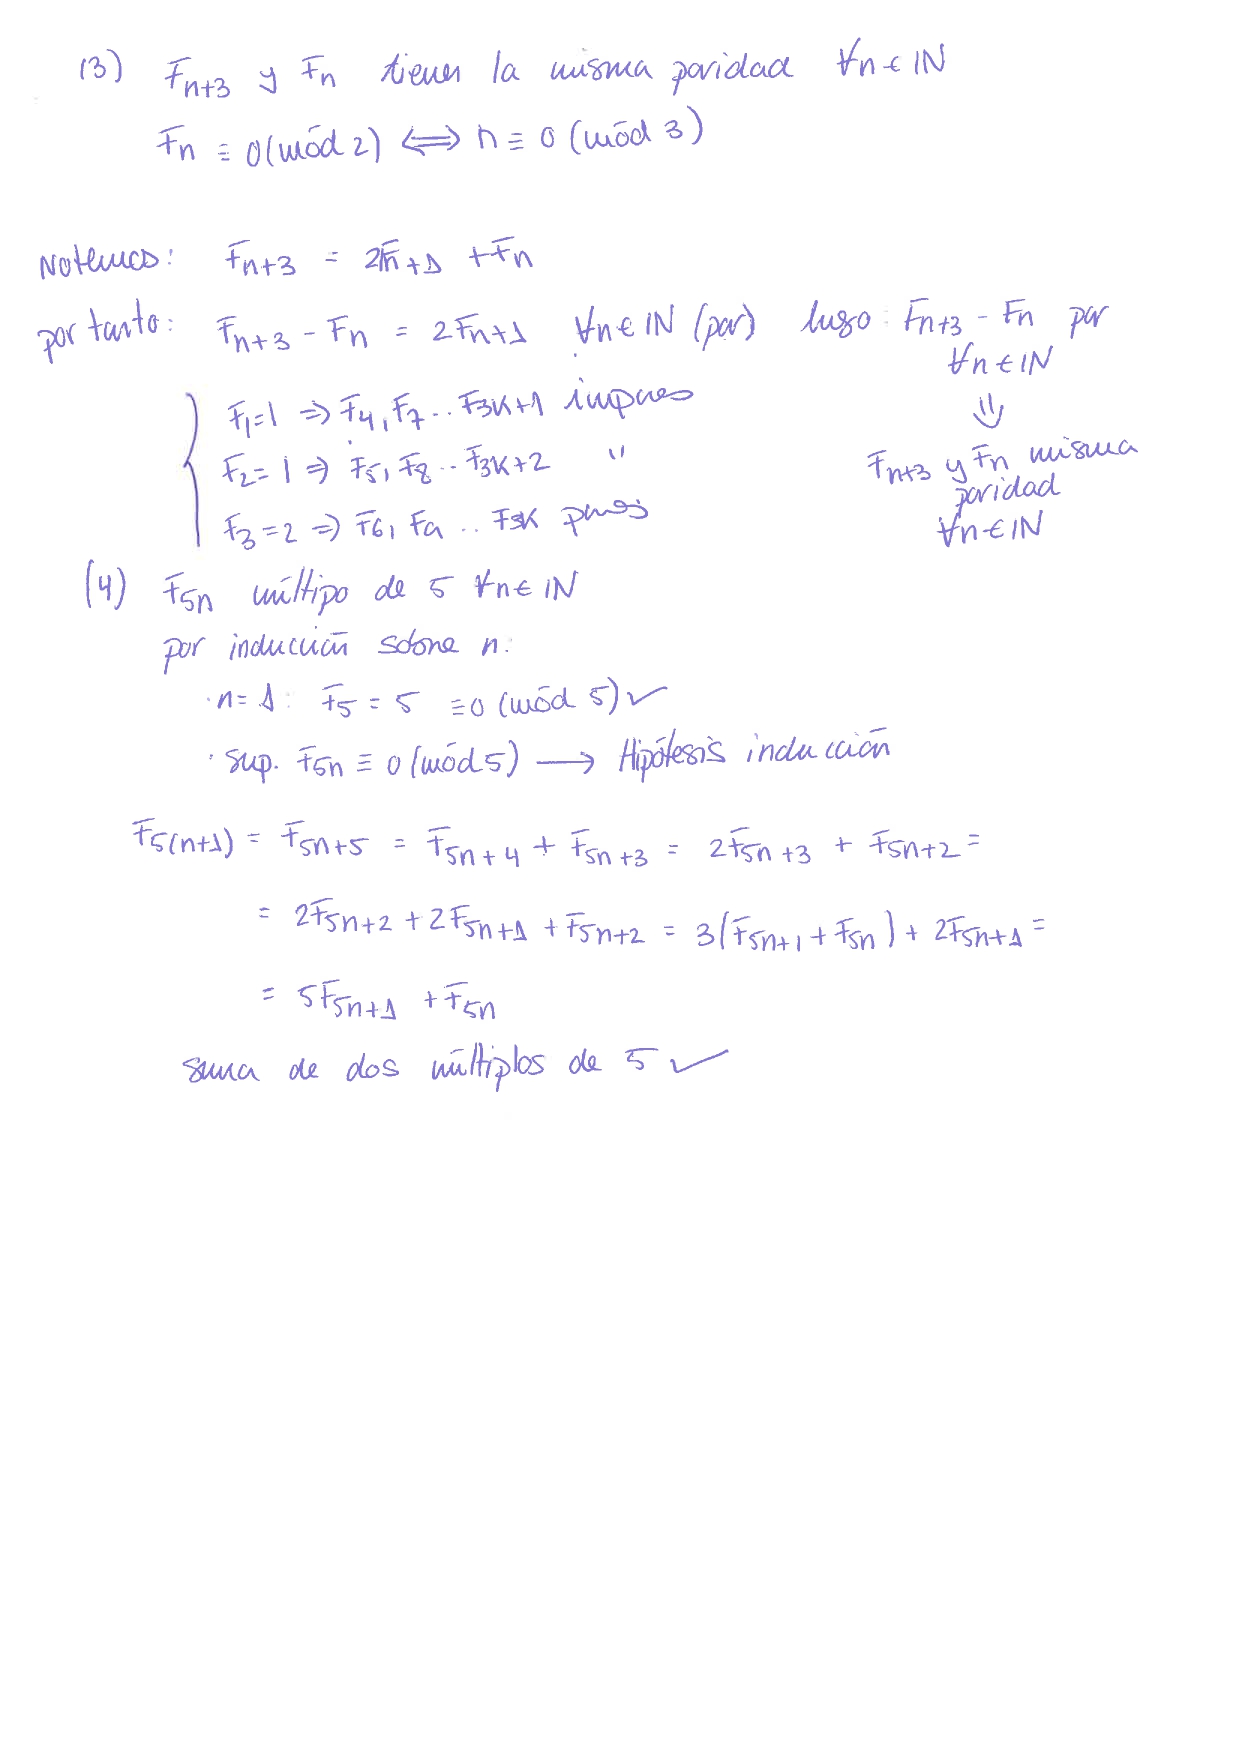 (3) Fn+3 y Fn tienen la misma paridad ∀n ∈ IN
Fn ≡ 0 (mód 2) ⟺ n ≡ 0 (mód 3)
Notemos: Fn+3 = 2Fn+1 + Fn
por tanto: Fn+3 - Fn = 2Fn+1 ∀n ∈ IN (par) luego: Fn+3 - Fn par
∀n ∈ IN
⇓
Fn+3 y Fn misma
paridad
∀n ∈ IN
F1 = 1 ⇒ F4, F7 .. F3K+1 impares
F2 = 1 ⇒ F5, F8 .. F3K+2 "
F3 = 2 ⇒ F6, F9 .. F3K pares
(4) F5n múltipo de 5 ∀n ∈ IN
por inducción sobre n:
· n = 1: F5 = 5 ≡ 0 (mód 5) ✓
· Sup. F5n ≡ 0 (mód 5) ⟶ Hipótesis inducción
F5(n+1) = F5n+5 = F5n+4 + F5n+3 = 2F5n+3 + F5n+2 =
= 2F5n+2 + 2F5n+1 + F5n+2 = 3(F5n+1 + F5n) + 2F5n+1 =
= 5F5n+1 + F5n
suma de dos múltiplos de 5 ✓